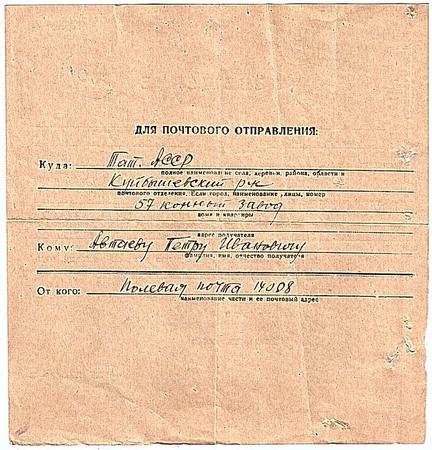 ДЛЯ ПОЧТОВОГО ОТПРАВЛЕНИЯ:
Куда: Тат. АССР
полное наименование села, деревни, района, области и
Куйбышевский р-н
почтового отделения. Если город, наименование улицы, номер
57 конный завод
дома и квартиры
адрес получателя
Кому: Автаеву Петру Ивановичу
фамилия, имя, отчество получателя
От кого: Полевая почта 14008
наименование части и ее почтовый адрес